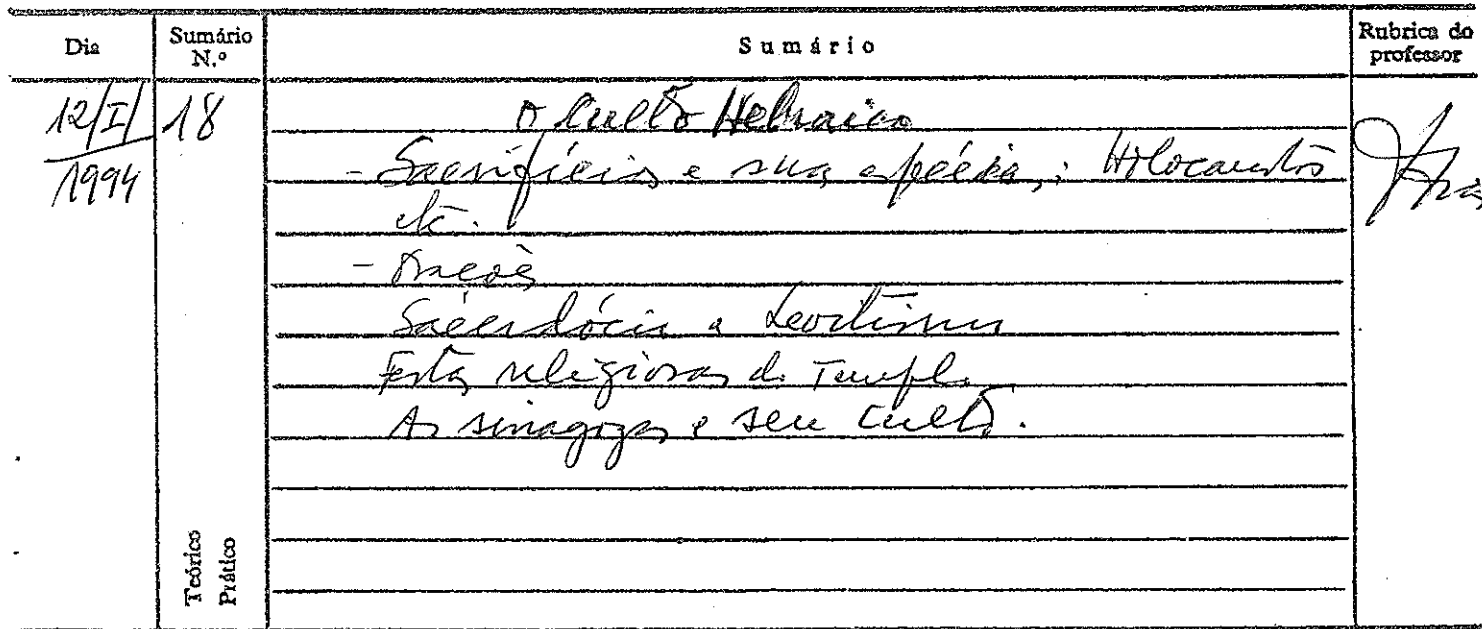 Dia
Sumário N.º
Sumário
Rubrica do professor
12/I/1994
18
O Culto Hebraico
- Sacrifícios e suas espécies: Holocaustos
etc.
-
Sacerdócio e Levitismo
Festas religiosas do Templo
As sinagogas e seu culto.
Teórico
Prático